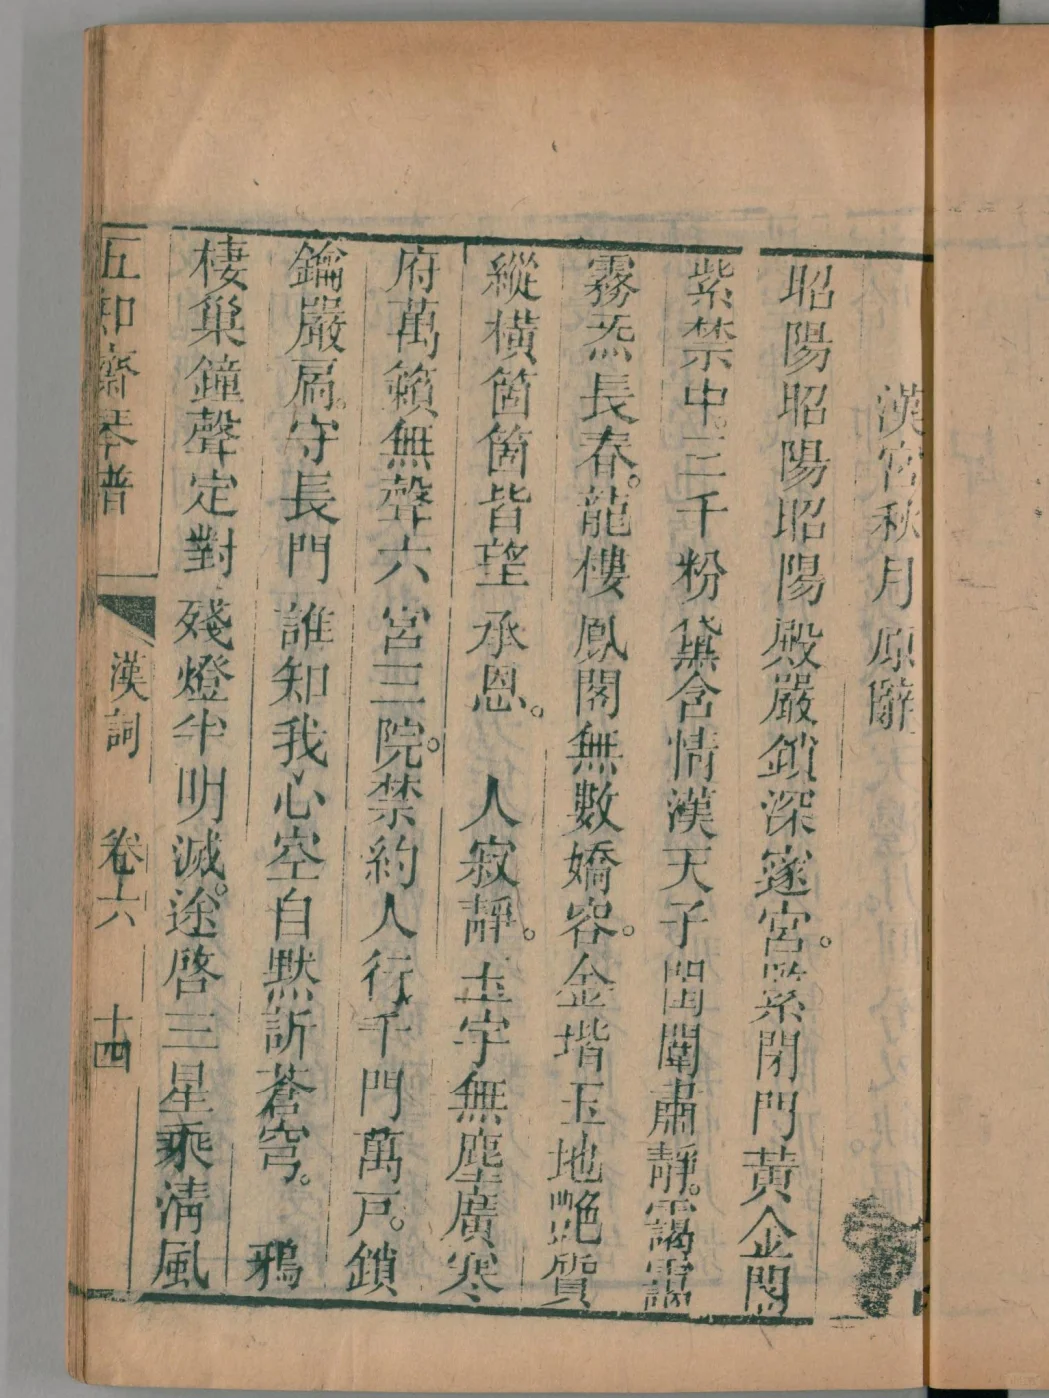 漢宮秋月原辭
昭陽昭陽昭陽殿嚴鎖深邃宮。縈閉門黃金闕
紫禁中。三千粉黛含情漢天子閶闔肅靜。靄靄
霧炁長春。龍樓鳳閣無數嬌容。金堦玉地艷質
縱橫箇箇皆望承恩。人寂靜。玉宇無塵廣寒
府萬籟無聲六宮三院。禁約人行千門萬戶。鎖
鑰嚴扃。守長門誰知我心空自默訴蒼穹。鴉
棲巢鐘聲定對殘燈半明滅。途啓三星乘淸風
五知齋琴譜 漢詞 卷六 十四